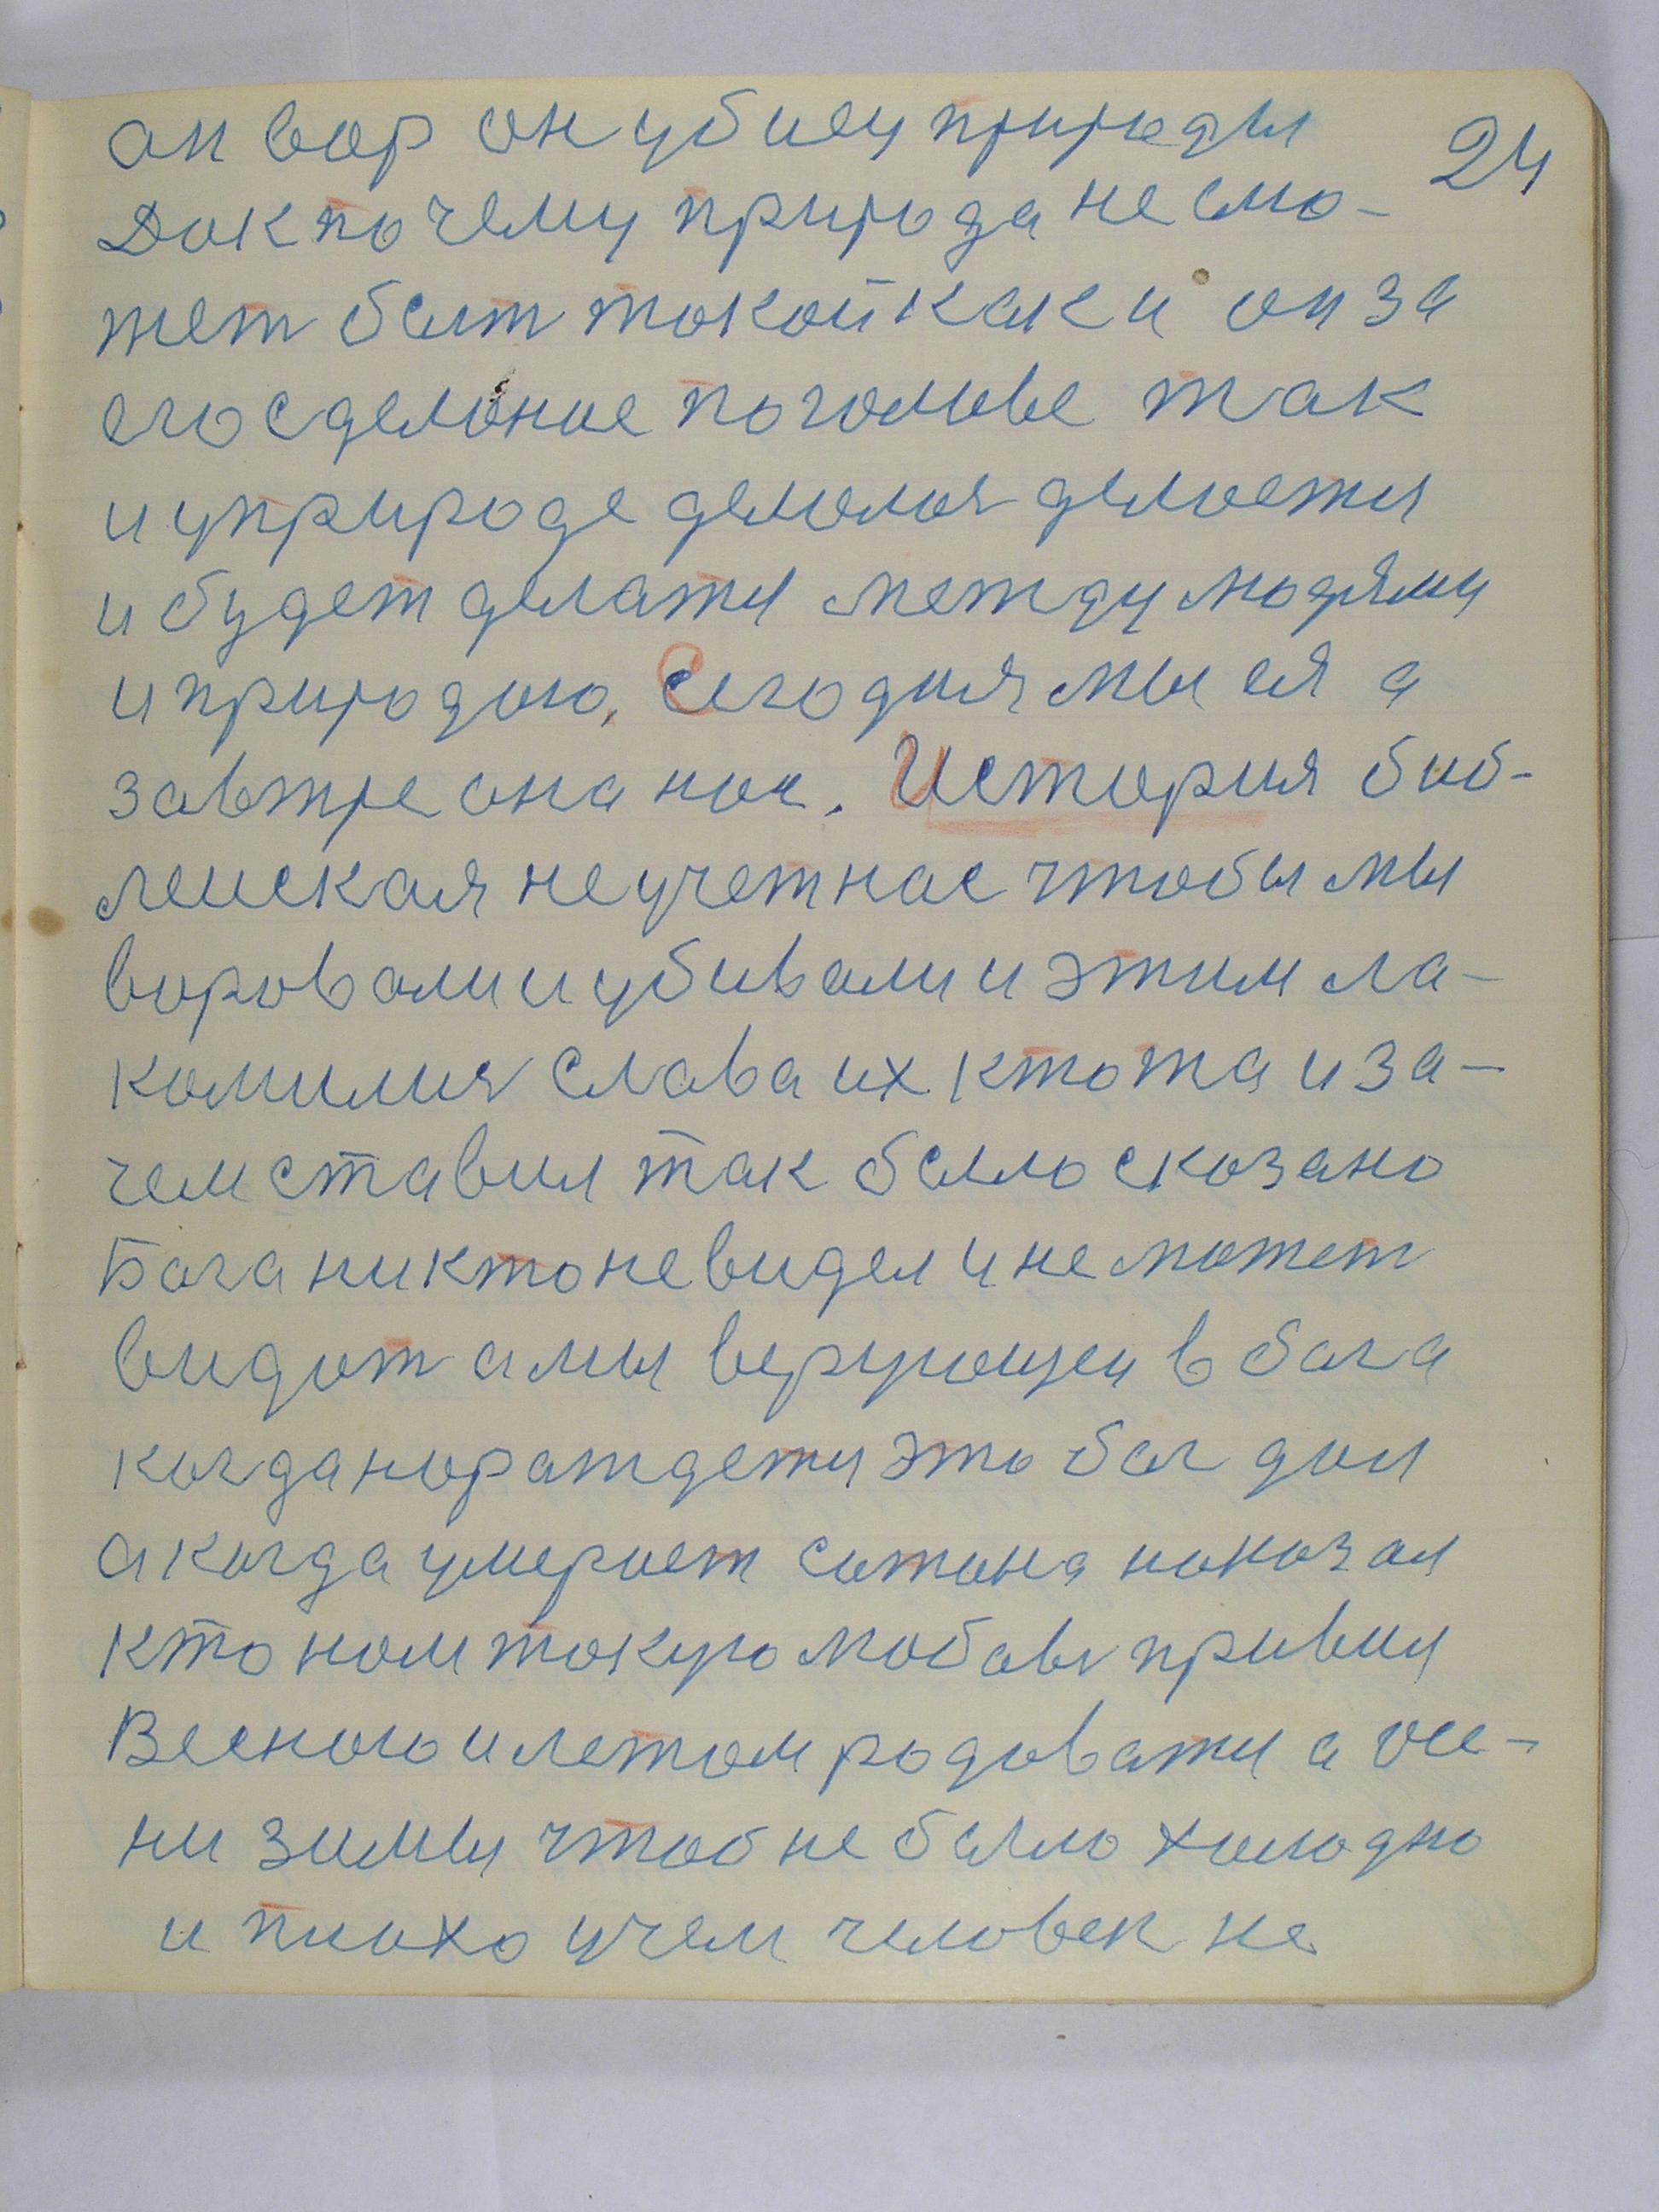 он вор он убиец природы 24
Док почему природа не смо-
жет быт токой как и он за
его сделоное поголовье так
и уприроде делолос делоется
и будет делатся между людями
и природою. Сегодня мы ея а
завтре она нас. История биб-
лейская не учет нас чтобы мы
воровали и убивали и этим ла-
комилис Слава их кто та и за-
чем ставил так было сказано
Бога никто не видел и не может
видот а мы верующеи в бога
когда нораждется это бог дол
а когда умероет сотона нокозал
кто ном токую любовь привил
Весною и летом родоватся а осе-
ни зимы чтоб не было холодно
и плохо учем человек не